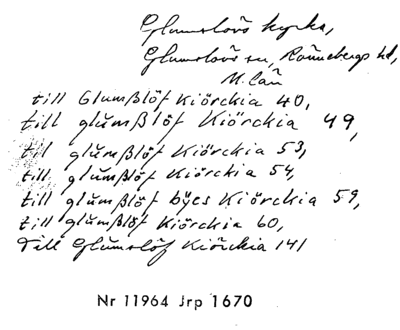 Glumslövs kyrka,
Glumslövs sn, Rönnebergs hd,
M. län
till Glumßlöf Kiörckia 40,
till glŭmßlöf Kiörckia 49,
til glŭmßlöf Kiörckia 53,
till glŭmßlöf Kiörckia 54,
till glŭmßlöf byes Kiörckia 59,
till glŭmßlöf Kiörckia 60,
Till Glŭmslöf Kiörckia 141
Nr 11964 Jrp 1670